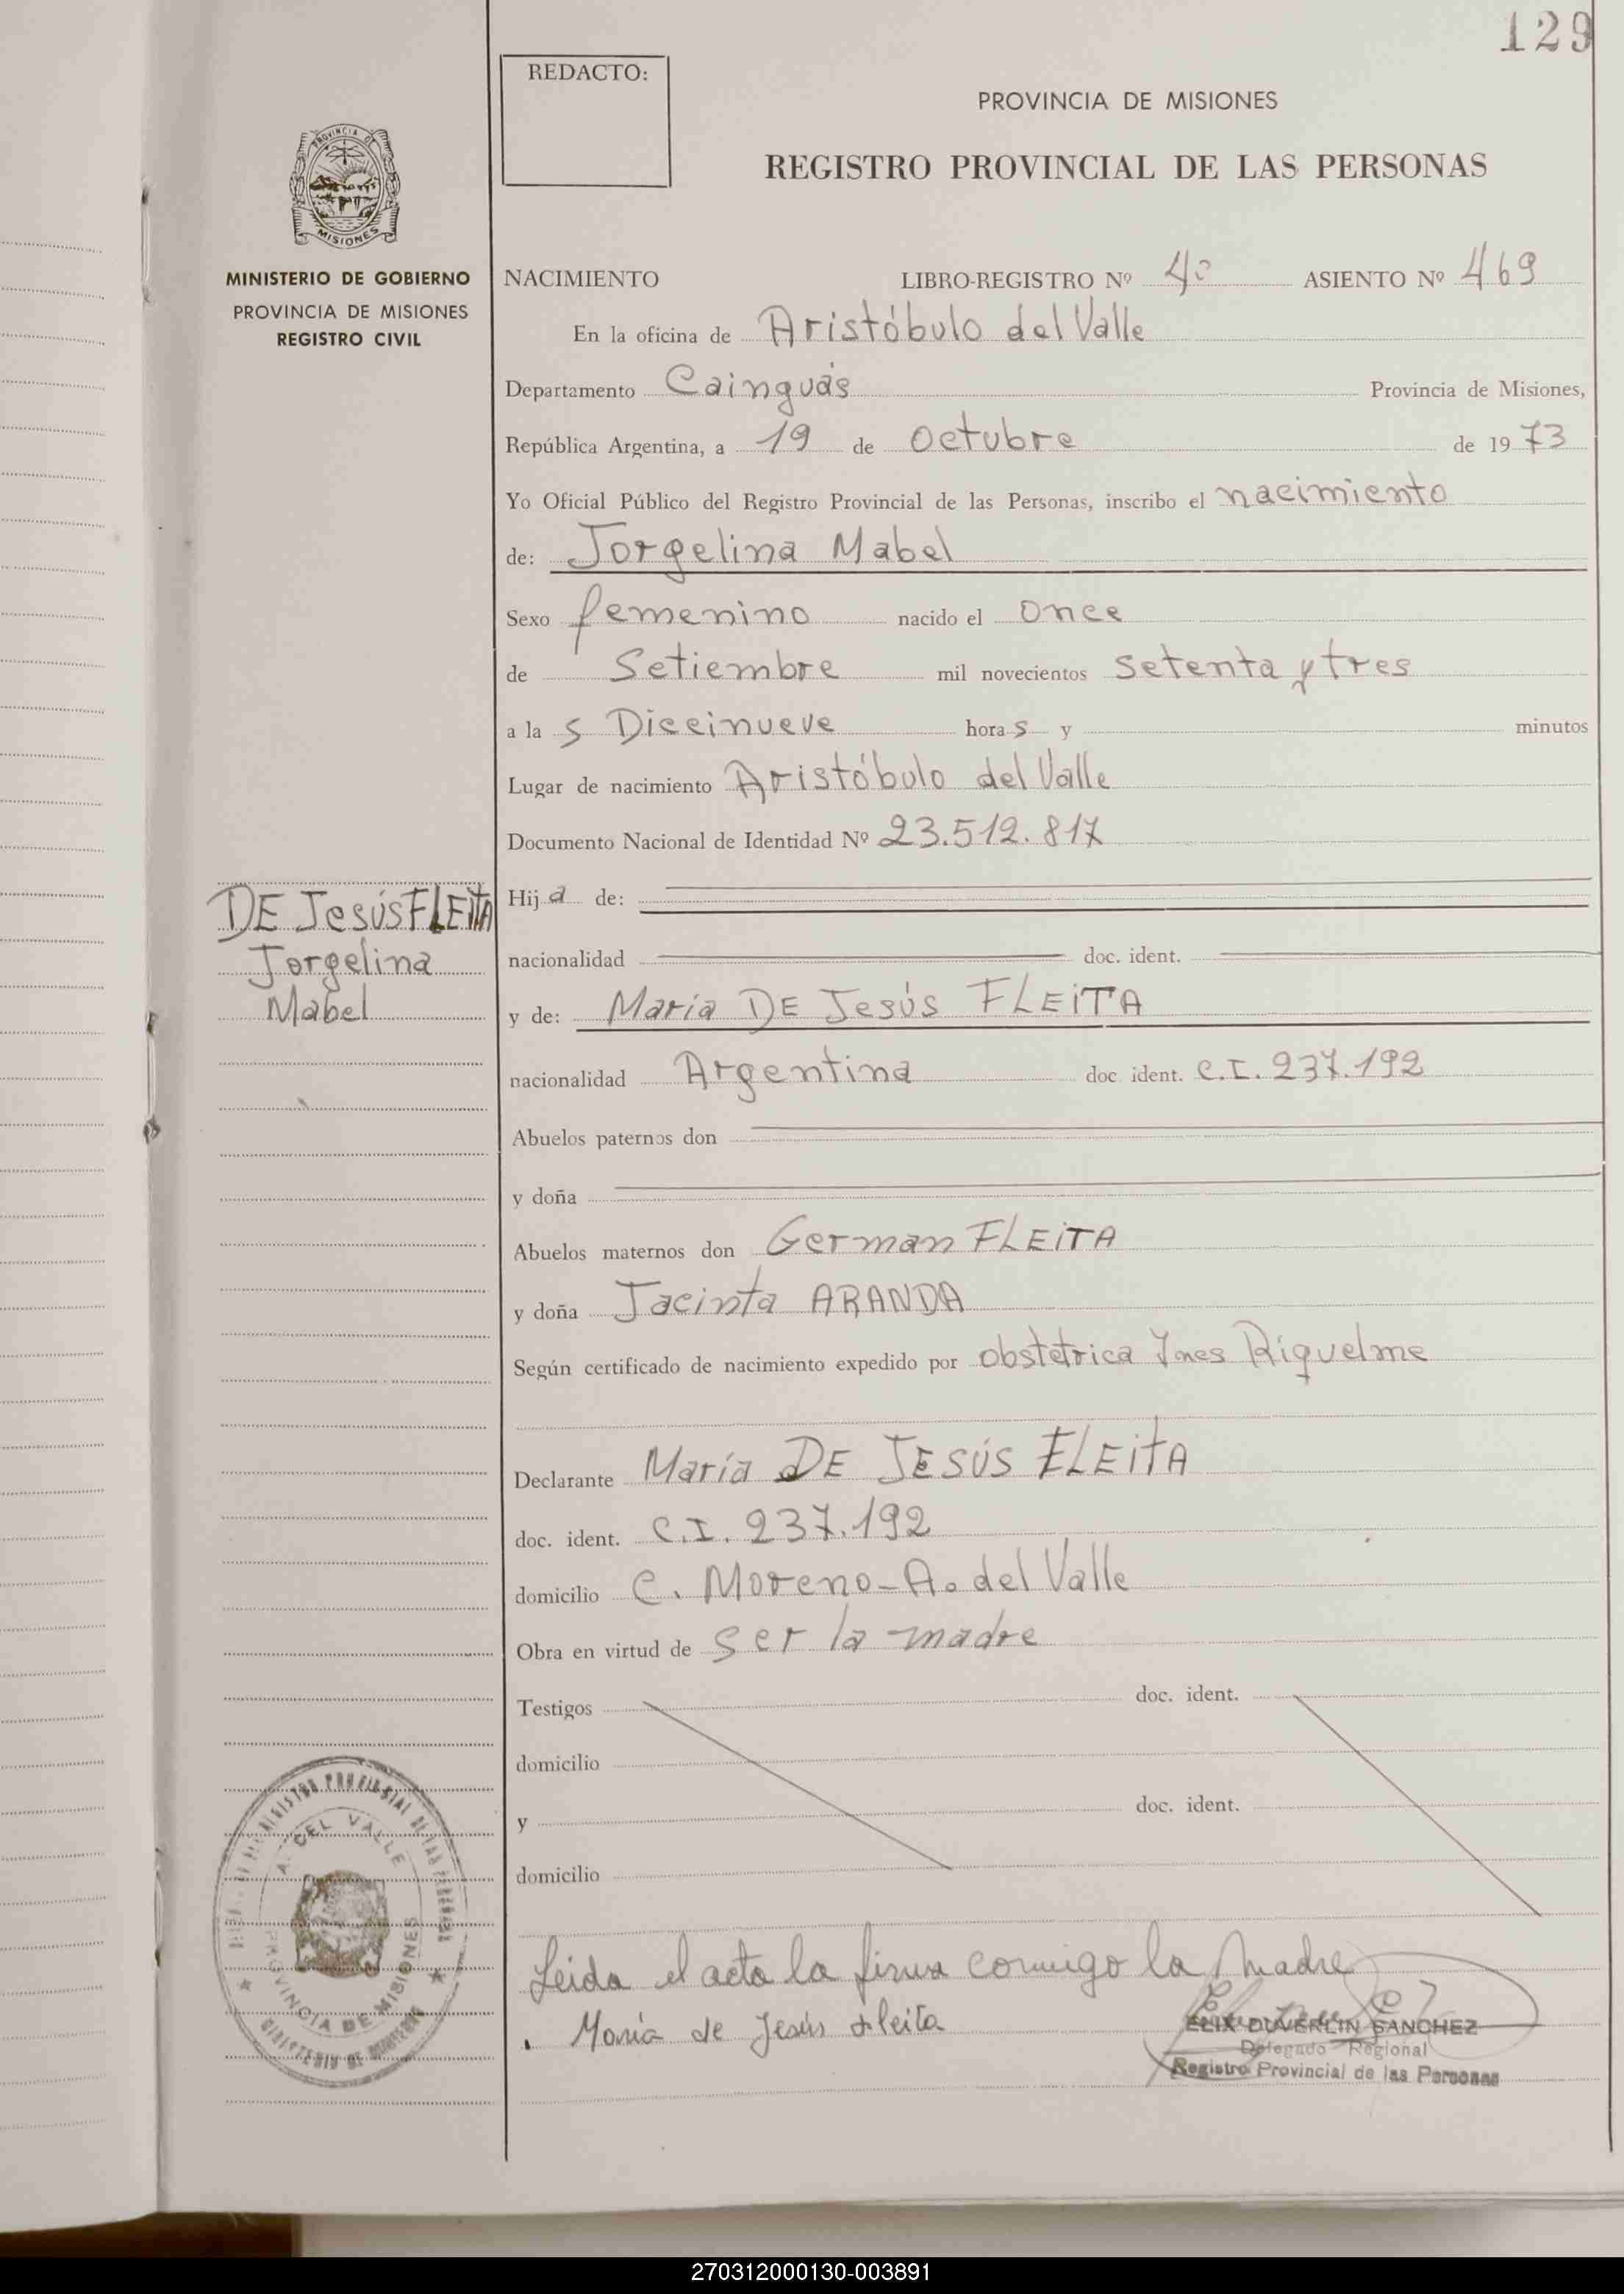 129
REDACTO:
PROVINCIA DE MISIONES
REGISTRO PROVINCIAL DE LAS PERSONAS
MISIONES
MINISTERIO DE GOBIERNO
PROVINCIA DE MISIONES
REGISTRO CIVIL
NACIMIENTO LIBRO-REGISTRO Nº 4º ASIENTO Nº 469
En la oficina de Aristóbulo del Valle
Departamento Cainguás Provincia de Misiones,
República Argentina, a 19 de octubre de 1973
Yo Oficial Público del Registro Provincial de las Personas, inscribo el nacimiento
de: Jorgelina Mabel
Sexo femenino nacido el once
de Setiembre mil novecientos setenta y tres
a la s Diecinueve hora s y minutos
Lugar de nacimiento Aristóbulo del Valle
Documento Nacional de Identidad Nº 23.512.817
DE Jesús FLEITA
Jorgelina
Mabel
Hij a de:
nacionalidad doc. ident.
y de: María DE Jesús FLEITA
nacionalidad Argentina doc ident. C.I. 237.192
Abuelos paternos don
y doña
Abuelos maternos don German FLEITA
y doña Jacinta ARANDA
Según certificado de nacimiento expedido por obstétrica Ynes Riquelme
Declarante María DE JESÚS FLEITA
doc. ident. C.I. 237.192
domicilio C. Moreno-A. del Valle
Obra en virtud de ser la madre
Testigos doc. ident.
domicilio
y doc. ident.
domicilio
A. DEL VALLE
PROVINCIA DE MISIONES
Leida el acta la firma conmigo la Madre
María de Jesús Fleita
ELIX DUVERLIN SANCHEZ
Delegado Regional
Registro Provincial de las Personas
270312000130-003891